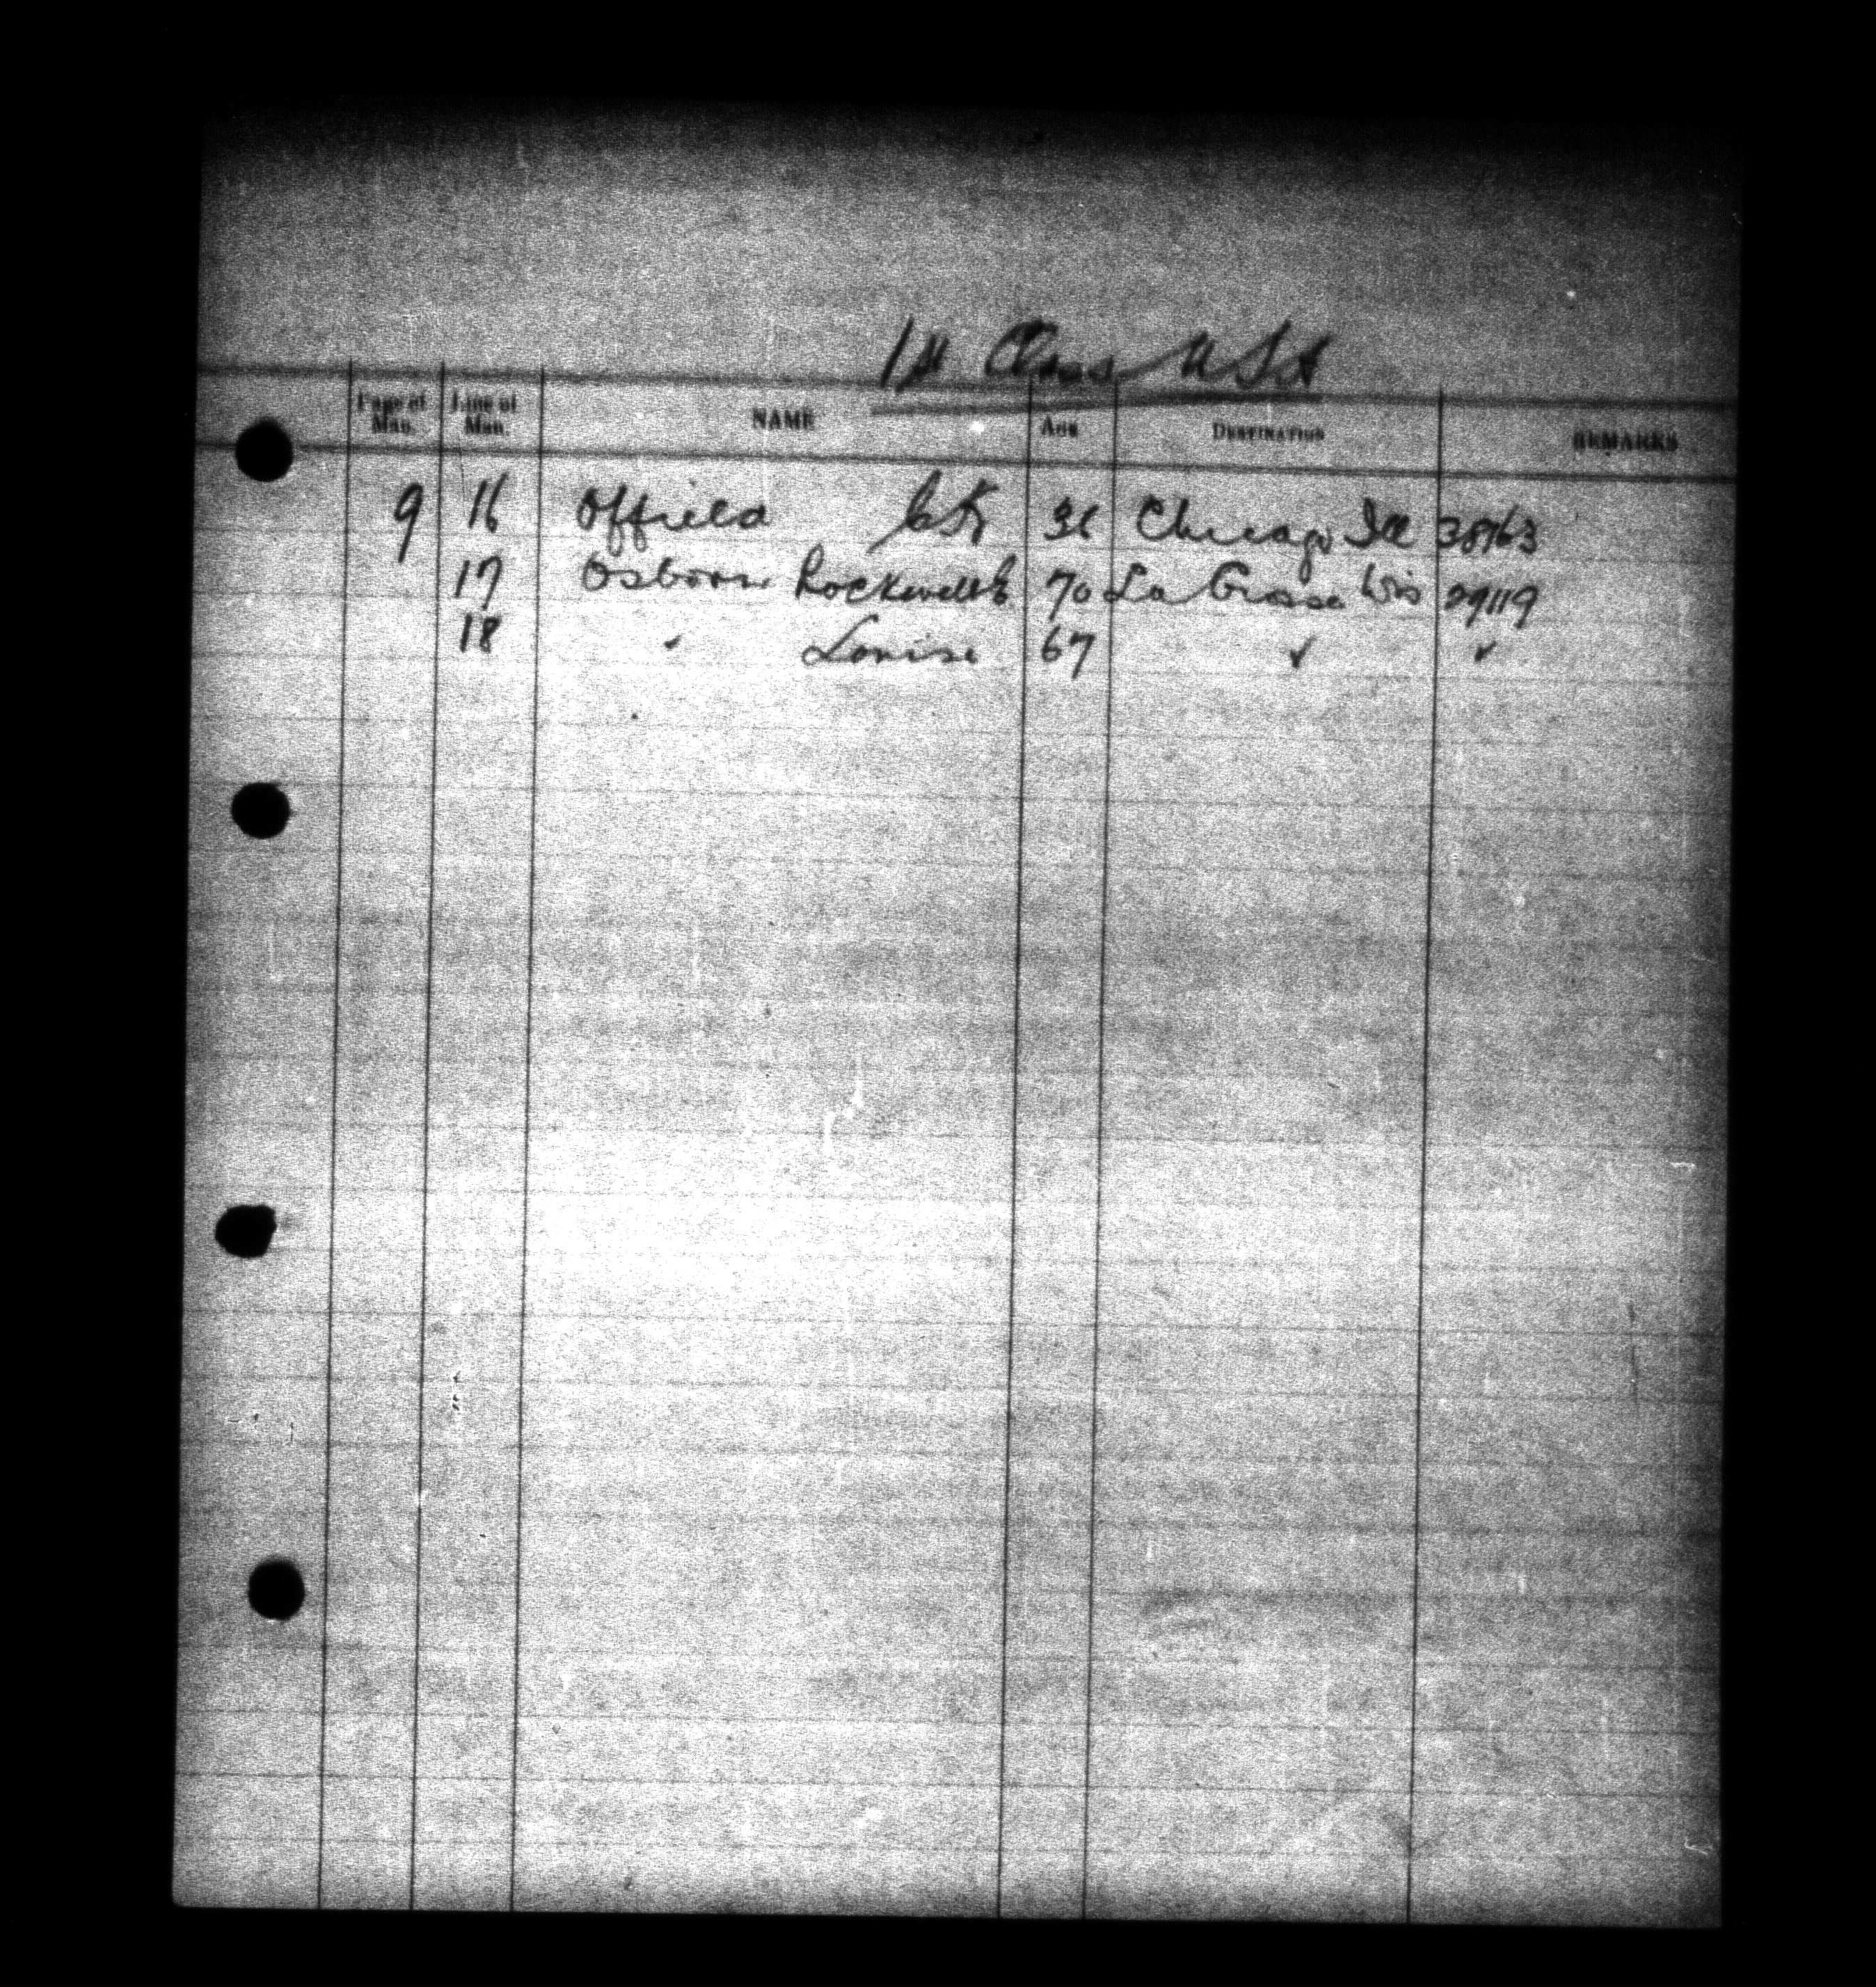 1st Class USA
Page of Man. Line of Man. NAME AGE DESTINATION REMARKS
9 16 Offield 36 Chicago Ill 38763
17 Osborn Rockwell E 70 La Crosse Wis 29119
18 " Louise 67 ✓ ✓